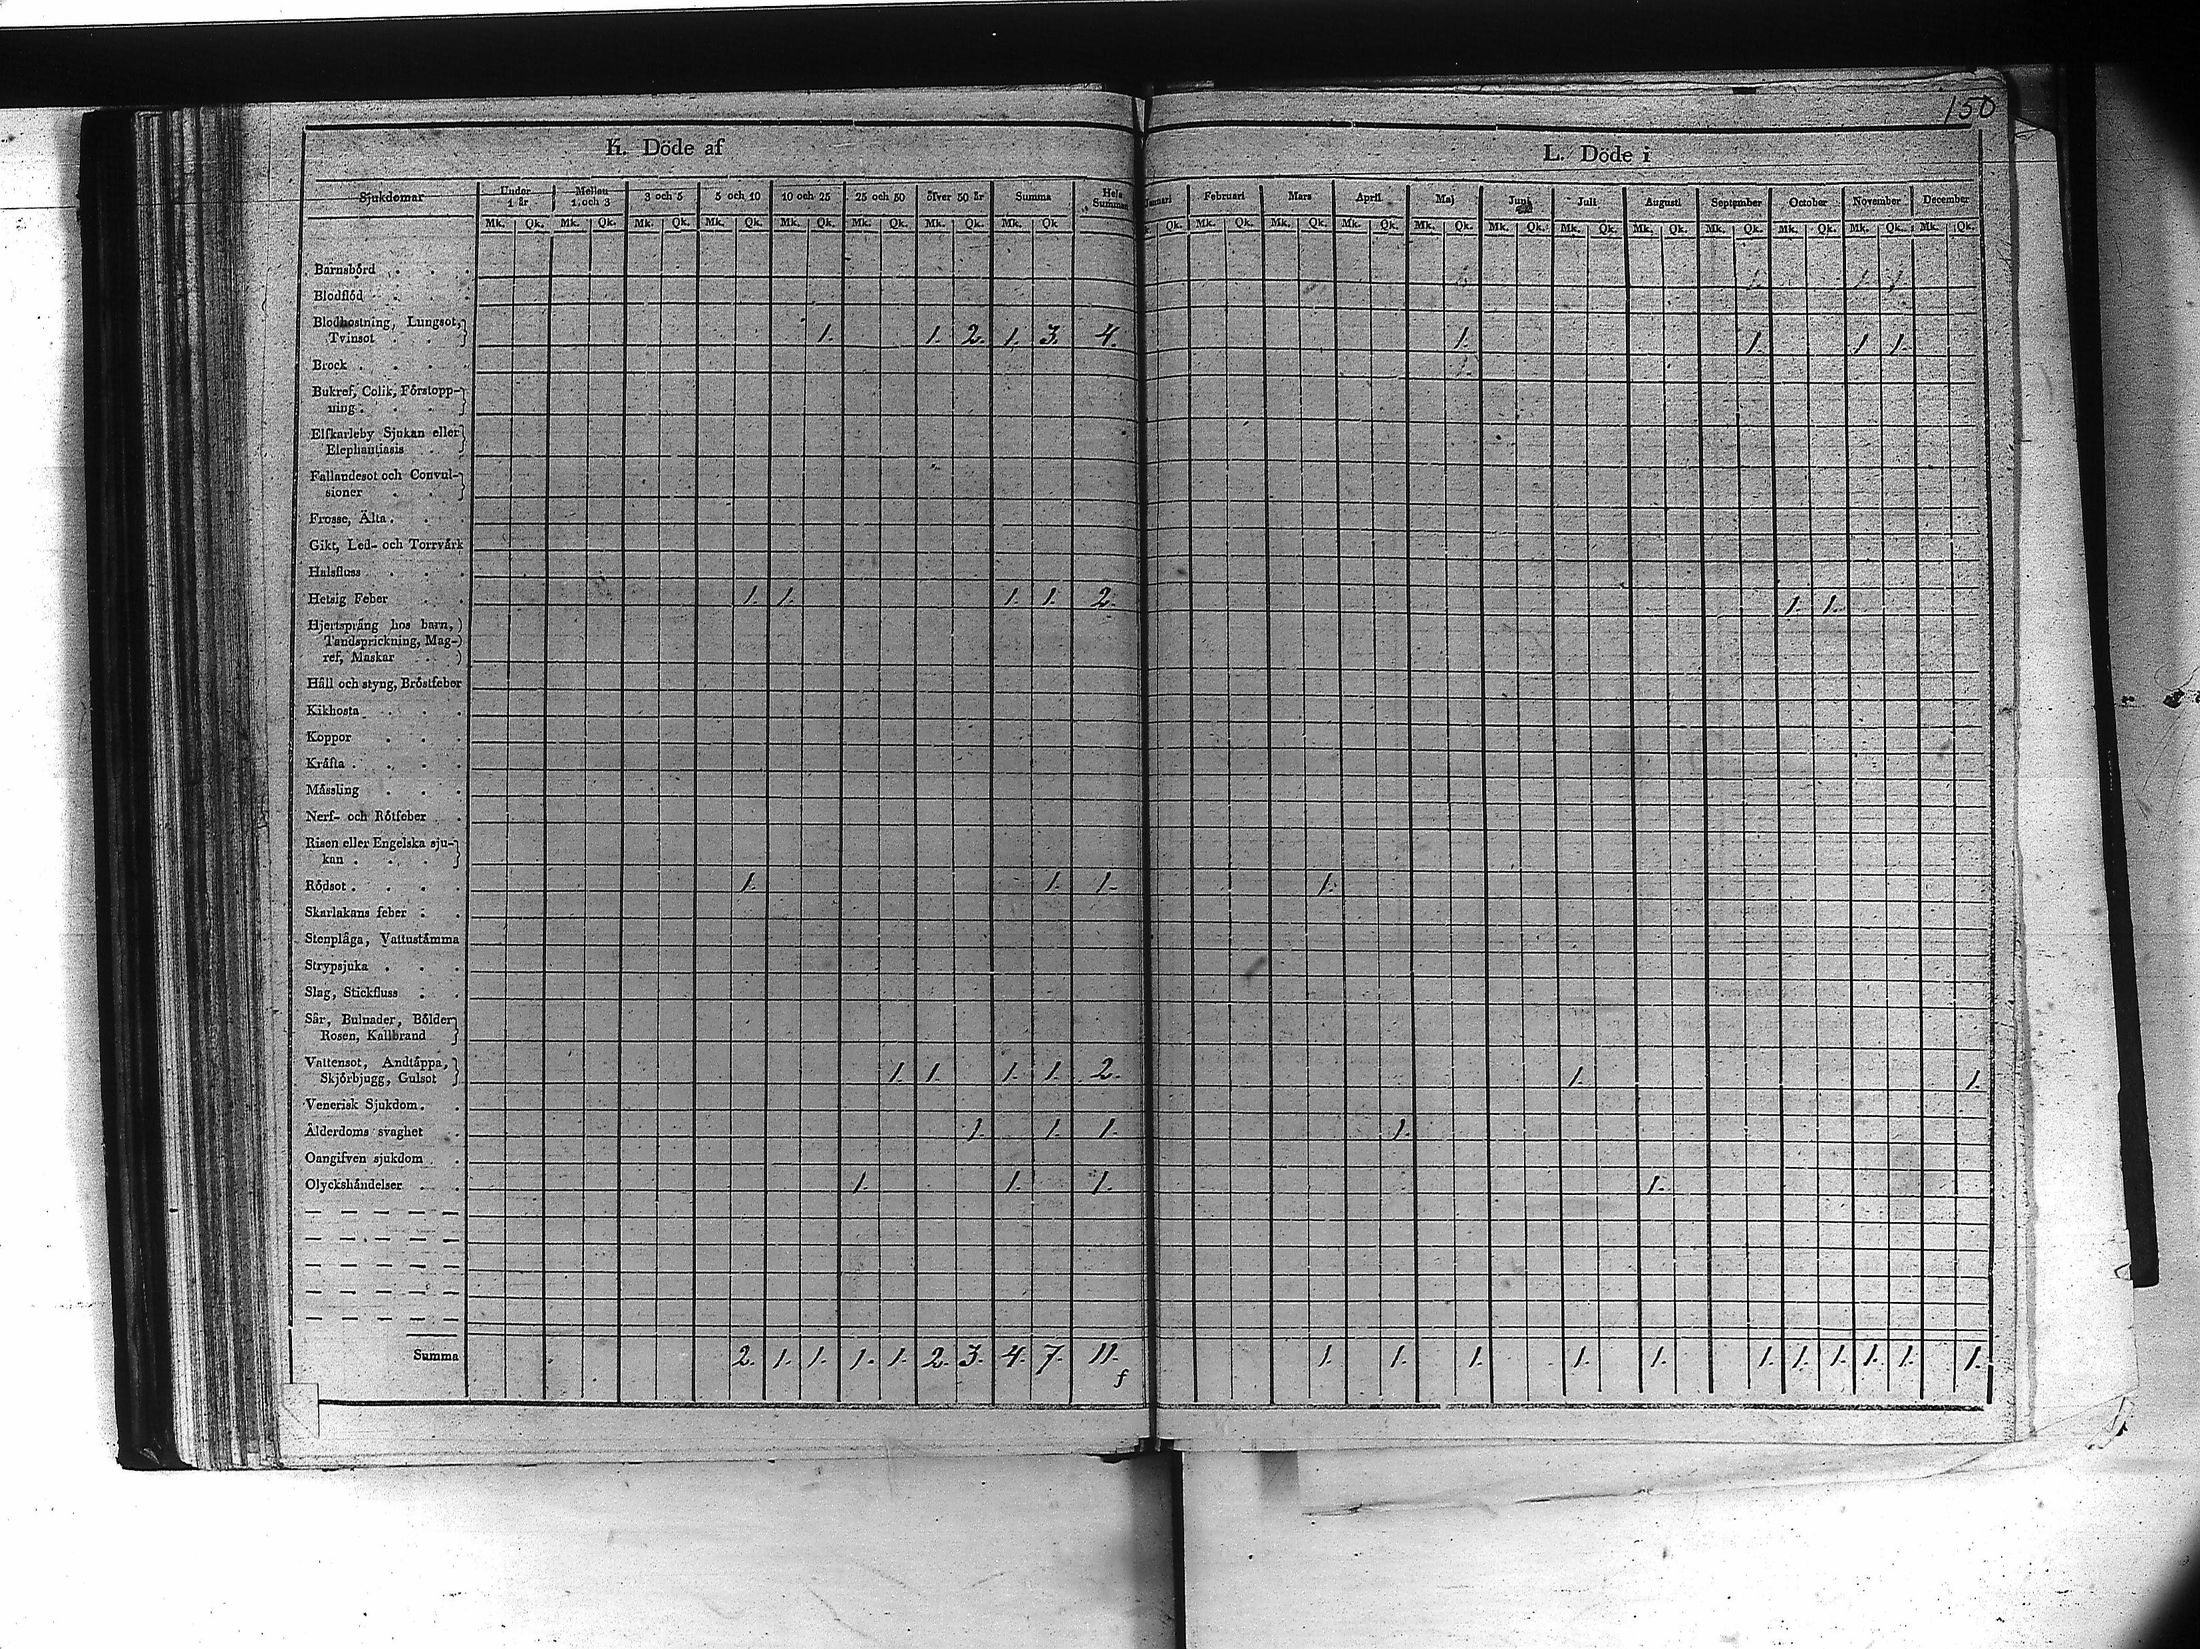 150
K. Döde af
L. Döde i
Sjukdomar Under 1 år Mellan 1 och 3 3 och 5 5 och 10 10 och 25 25 och 50 öfver 50 år Summa Hela Summan
Januari Februari Mars April Maj Juni Juli Augusti September October November December
Mk. Qk. Mk. Qk. Mk. Qk. Mk. Qk. Mk. Qk. Mk. Qk. Mk. Qk. Mk. Qk
Qk. Mk. Qk. Mk. Qk. Mk. Qk. Mk. Qk. Mk. Qk. Mk. Qk. Mk. Qk. Mk. Qk. Mk. Qk. Mk. Qk. Mk. Qk.
Barnsbörd
Blodflöd
Blodhostning, Lungsot,
Tvinsot 1. 1. 2. 1. 3. 4. 1. 1. 1. 1.
Brock
Bukref, Colik, Förstopp-
ning
Elfkarleby Sjukan eller
Elephantiasis
Fallandesot och Convul-
sioner
Frosse, Älta
Gikt, Led- och Torrvärk
Halsfluss
Hetsig Feber 1. 1. 1. 1. 2. 1. 1.
Hjertsprång hos barn,
Tandsprickning, Mag-
ref, Maskar
Håll och styng, Bröstfeber
Kikhosta
Koppor
Kräfta
Mässling
Nerf- och Rötfeber
Risen eller Engelska sju-
kan
Rödsot 1. 1. 1. 1.
Skarlakans feber
Stenplåga, Vattustämma
Strypsjuka
Slag, Stickfluss
Sår, Bulnader, Bölder
Rosen, Kallbrand
Vattensot, Andtäppa,
Skjörbjugg, Gulsot 1. 1. 1. 1. 2. 1. 1.
Venerisk Sjukdom
Ålderdoms svaghet 1. 1. 1. 1.
Oangifven sjukdom
Olyckshändelser 1. 1. 1. 1.
Summa 2. 1. 1. 1. 1. 2. 3. 4. 7. 11. 1. 1. 1. 1. 1. 1. 1. 1. 1. 1. 1.